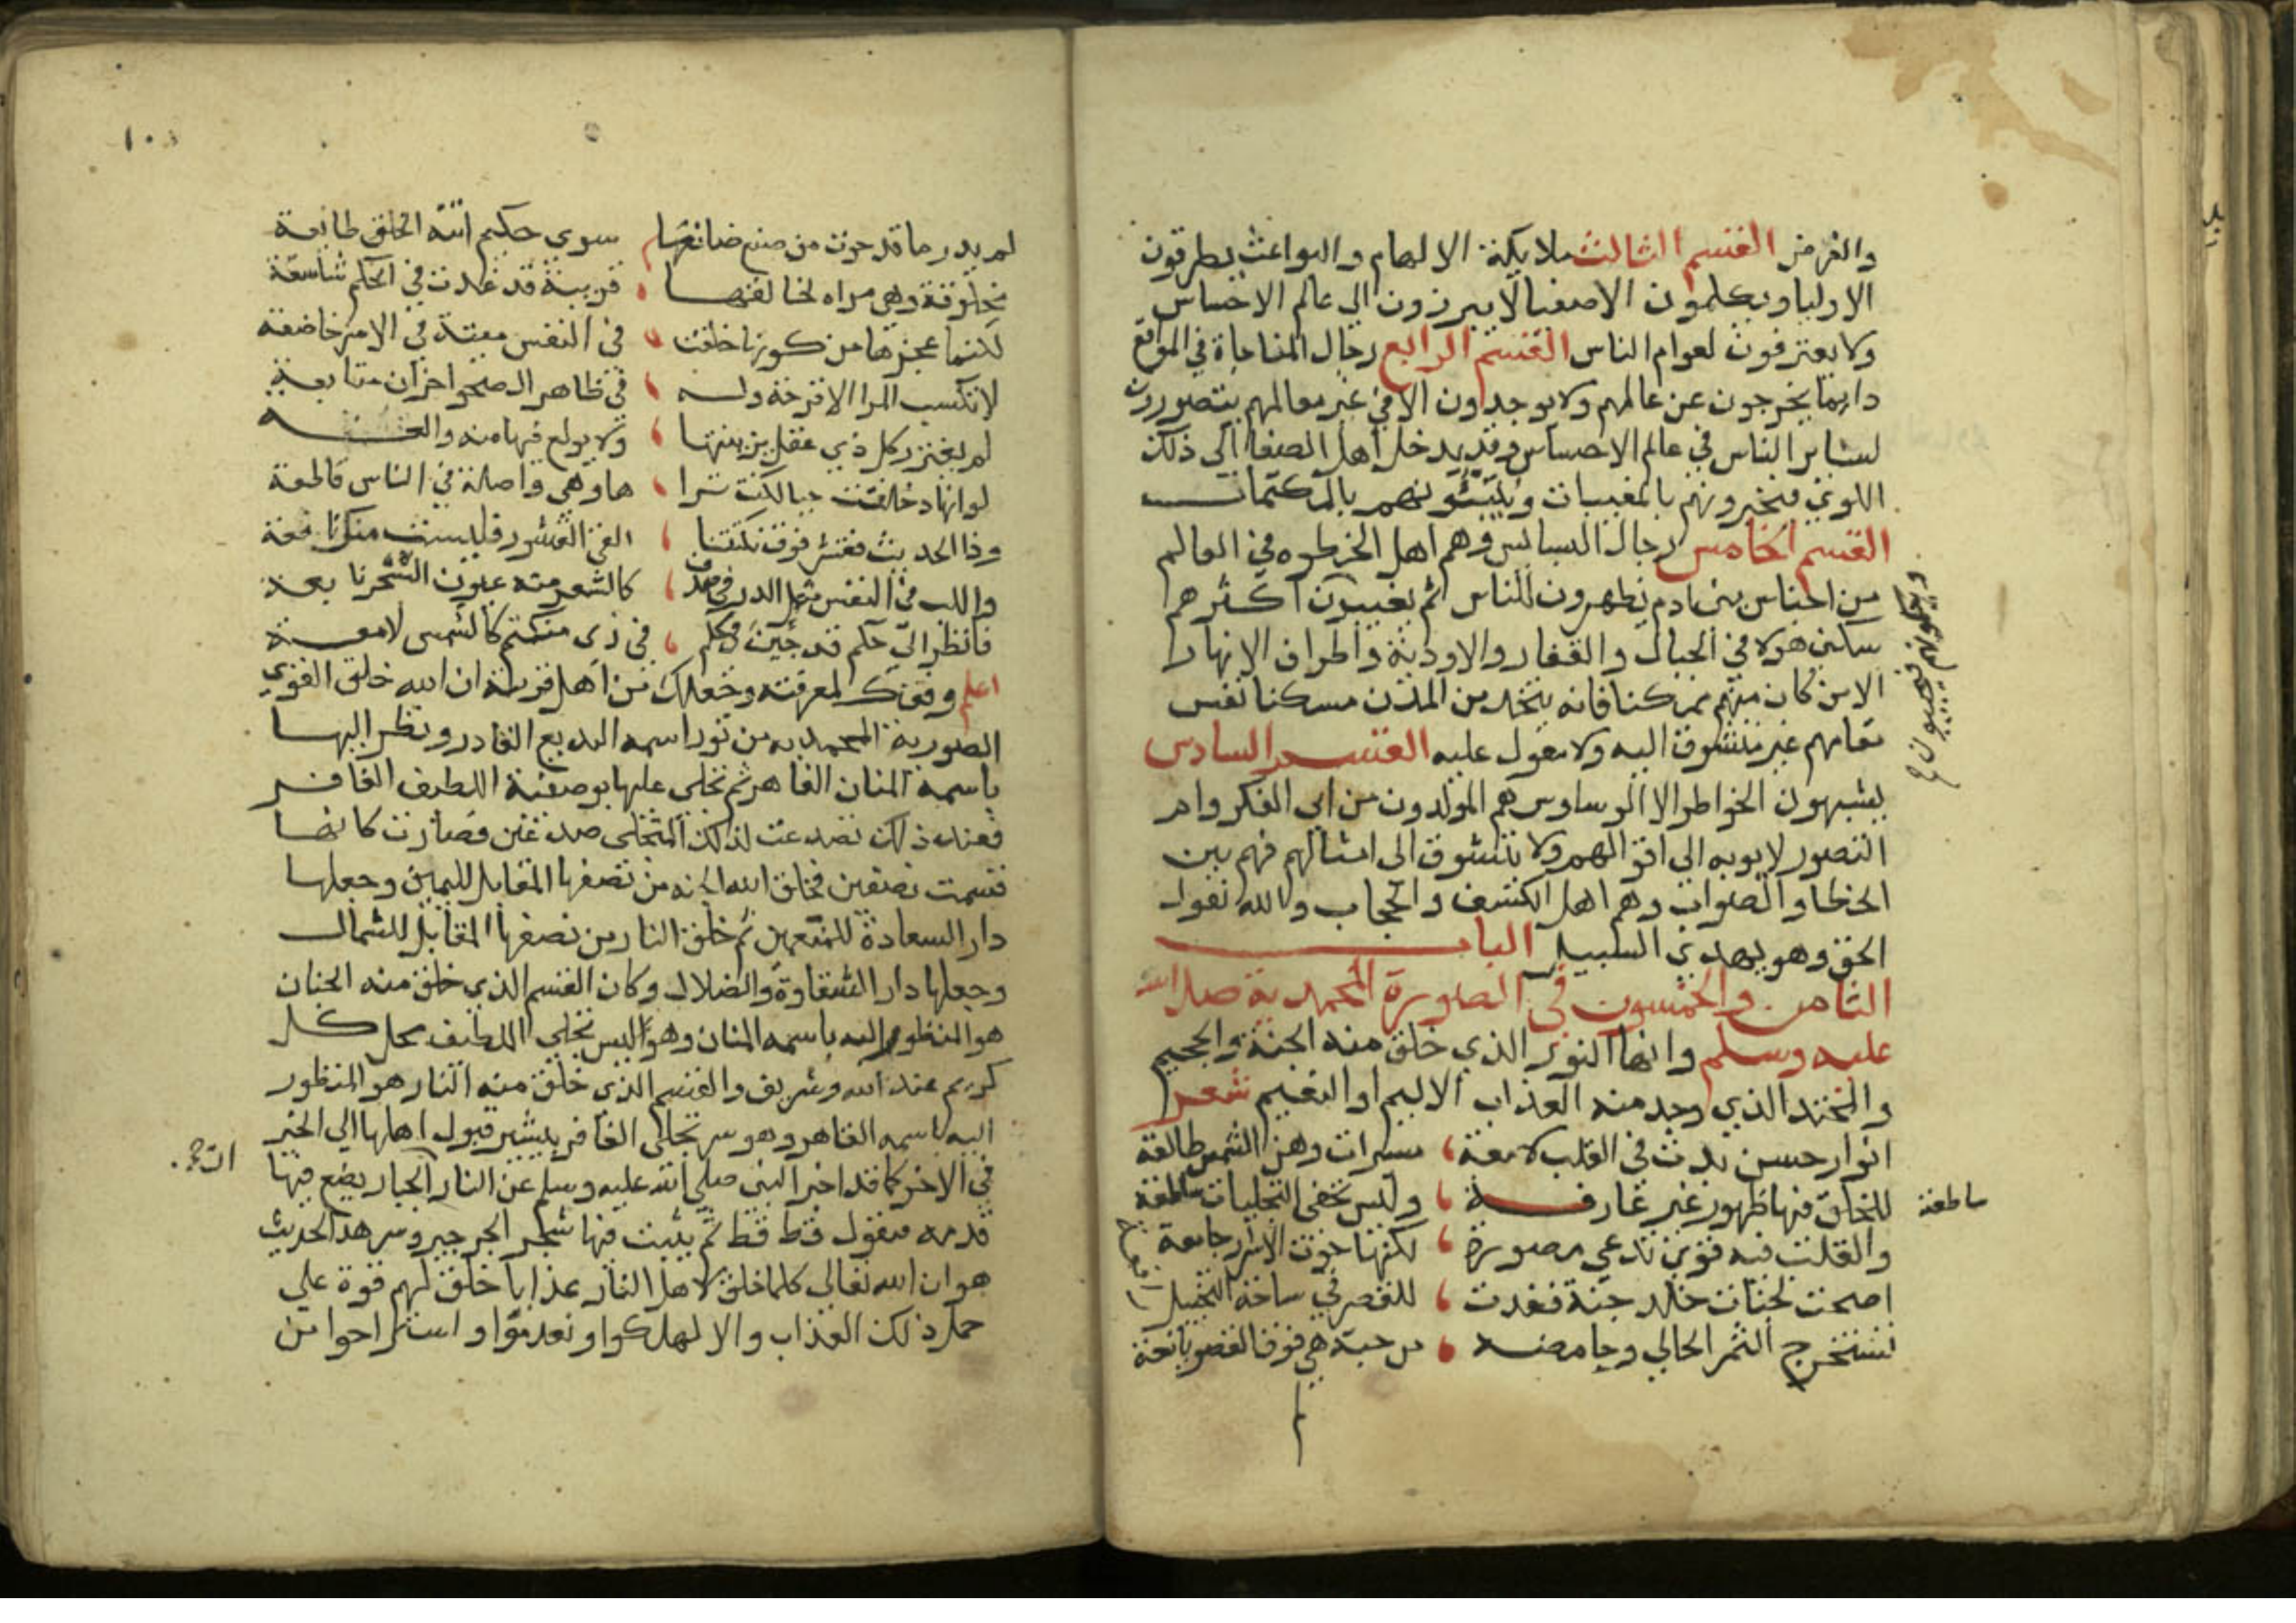 والفرض القسم الثالث ملايكة الالهام والبواعث يطرقون
الاوليا ويكلمون الاصفيا لا يبرزون الى عالم الاحساس
ولا يعترفون لعوام الناس القسم الرابع رجال المناجاة في المواقع
دايما يخرجون عن عالمهم ولا يوجدون الا في غير معالمهم يتصورون
لساير الناس في عالم الاحساس وقد يدخل اهل الصفا الى ذلك
اللوي فيخبرونهم بالمغيبات وينبئونهم بالمكتمات
القسم الخامس رجال البسابس وهم اهل الخطوه في العالم
من اجناس بني ادم يظهرون للناس ثم يغيبون اكثرهم
سكنى هولا في الجبال والقفار والاودية واطراف الانهار
الا من كان منهم متمكنا فانه يتخذ من المدن مسكنا نفس
مقامهم غير متشوق اليه ولا معول عليه القسم السادس
يشبهون الخواطر لا الوساوس هم المولدون من ابي الفكر وام
التصور لا يوبه الى اقوالهم ولا يتشوق الى امثالهم فهم بين
الخطا والصواب وهم اهل الكشف والحجاب والله يقول
الحق وهو يهدي السبيل الباب
الثامن والخمسون في الصورة المحمدية صلى الله
عليه وسلم وانها النور الذي خلق منه الجنة والجحيم
والمحتد الذي وجد منه العذاب الاليم او النعيم شعر
انوار حسن بدت في القلب لامعة مسترات وهن الشمس طالعة
للخلق فيها ظهور غير عارفة وليس تخفى التجليات ساطعة
ساطعة
والقلب فيه قوى تدعى مصورة لكنها حوت الاسرار جامعة
اضحت لجنات خلد جنة فغدت للقصر في ساحة التخييل
تستخرج الثمر الحالي وحامضه من حبة هي فوق الغصن يانعة
لم يدر ما قد حوت من صنع صانعها سوى حكيم اتته الخلق طايعة
مخلوقة وهي مراه لخالقها قريبة قد غدت في الحكم شاسعة
لكنما عجزها من كونها خلقت في النفس ميتة في الامر خاضعة
لا تكسب المرا الا قرحة وله في ظاهر الصحو احزان متابعة
لم يغترر كل ذي عقل بزينتها ولا يولع فيها منه والعـه
لو انها خلقت حيا لكنت ترا ها وهي واصلة في الناس قاطعة
وذا الحديث فقشر فوق نكتتنا الق القشور فليست منك نافعة
واللب في النفس مثل الدر في صدف كالشعر منه عيون الشحرنا بعة
فانظر الى حكم قد جين في كلم في زي منكتم كالشمس لامعة
اعلم وفقك لمعرفته وجعلك من اهل قربته ان الله خلق القوي
الصورية المحمديه من نور اسمه البديع القادر ونظر اليها
باسمه المنان القاهر ثم تجلى عليها بوصفه اللطيف الغافر
فعند ذلك تصدعت لذلك التجلى صدعتين فصارت كانها
قسمت نصفين فخلق الله الجنه من نصفها المقابل لليمين وجعلها
دار السعادة للمنعمين ثم خلق النار من نصفها المقابل للشمال
وجعلها دار الشقاوة والضلال وكان القسم الذي خلق منه الجنان
هو المنظور اليه باسمه المنان وهو اليس تجلى اللطيف محل كل
كريم عند الله وشريف والقسم الذي خلق منه النار هو المنظور
اليه باسمه القاهر وهو سر تجلى الغافر يشير قبول اهلها الى الخير
في الاخر كما قد اخبر النبي صلى الله عليه وسلم عن النار الجبار يضع فيها
قدمه فيقول قط قط ثم ينبت فيها شجر الجرجير وسر هذا الحديث
هو ان الله تعالى كلما خلق لاهل النار عذابا خلق لهم قوة على
حمل ذلك العذاب والا لهلكوا وتعدموا واستراحوا من